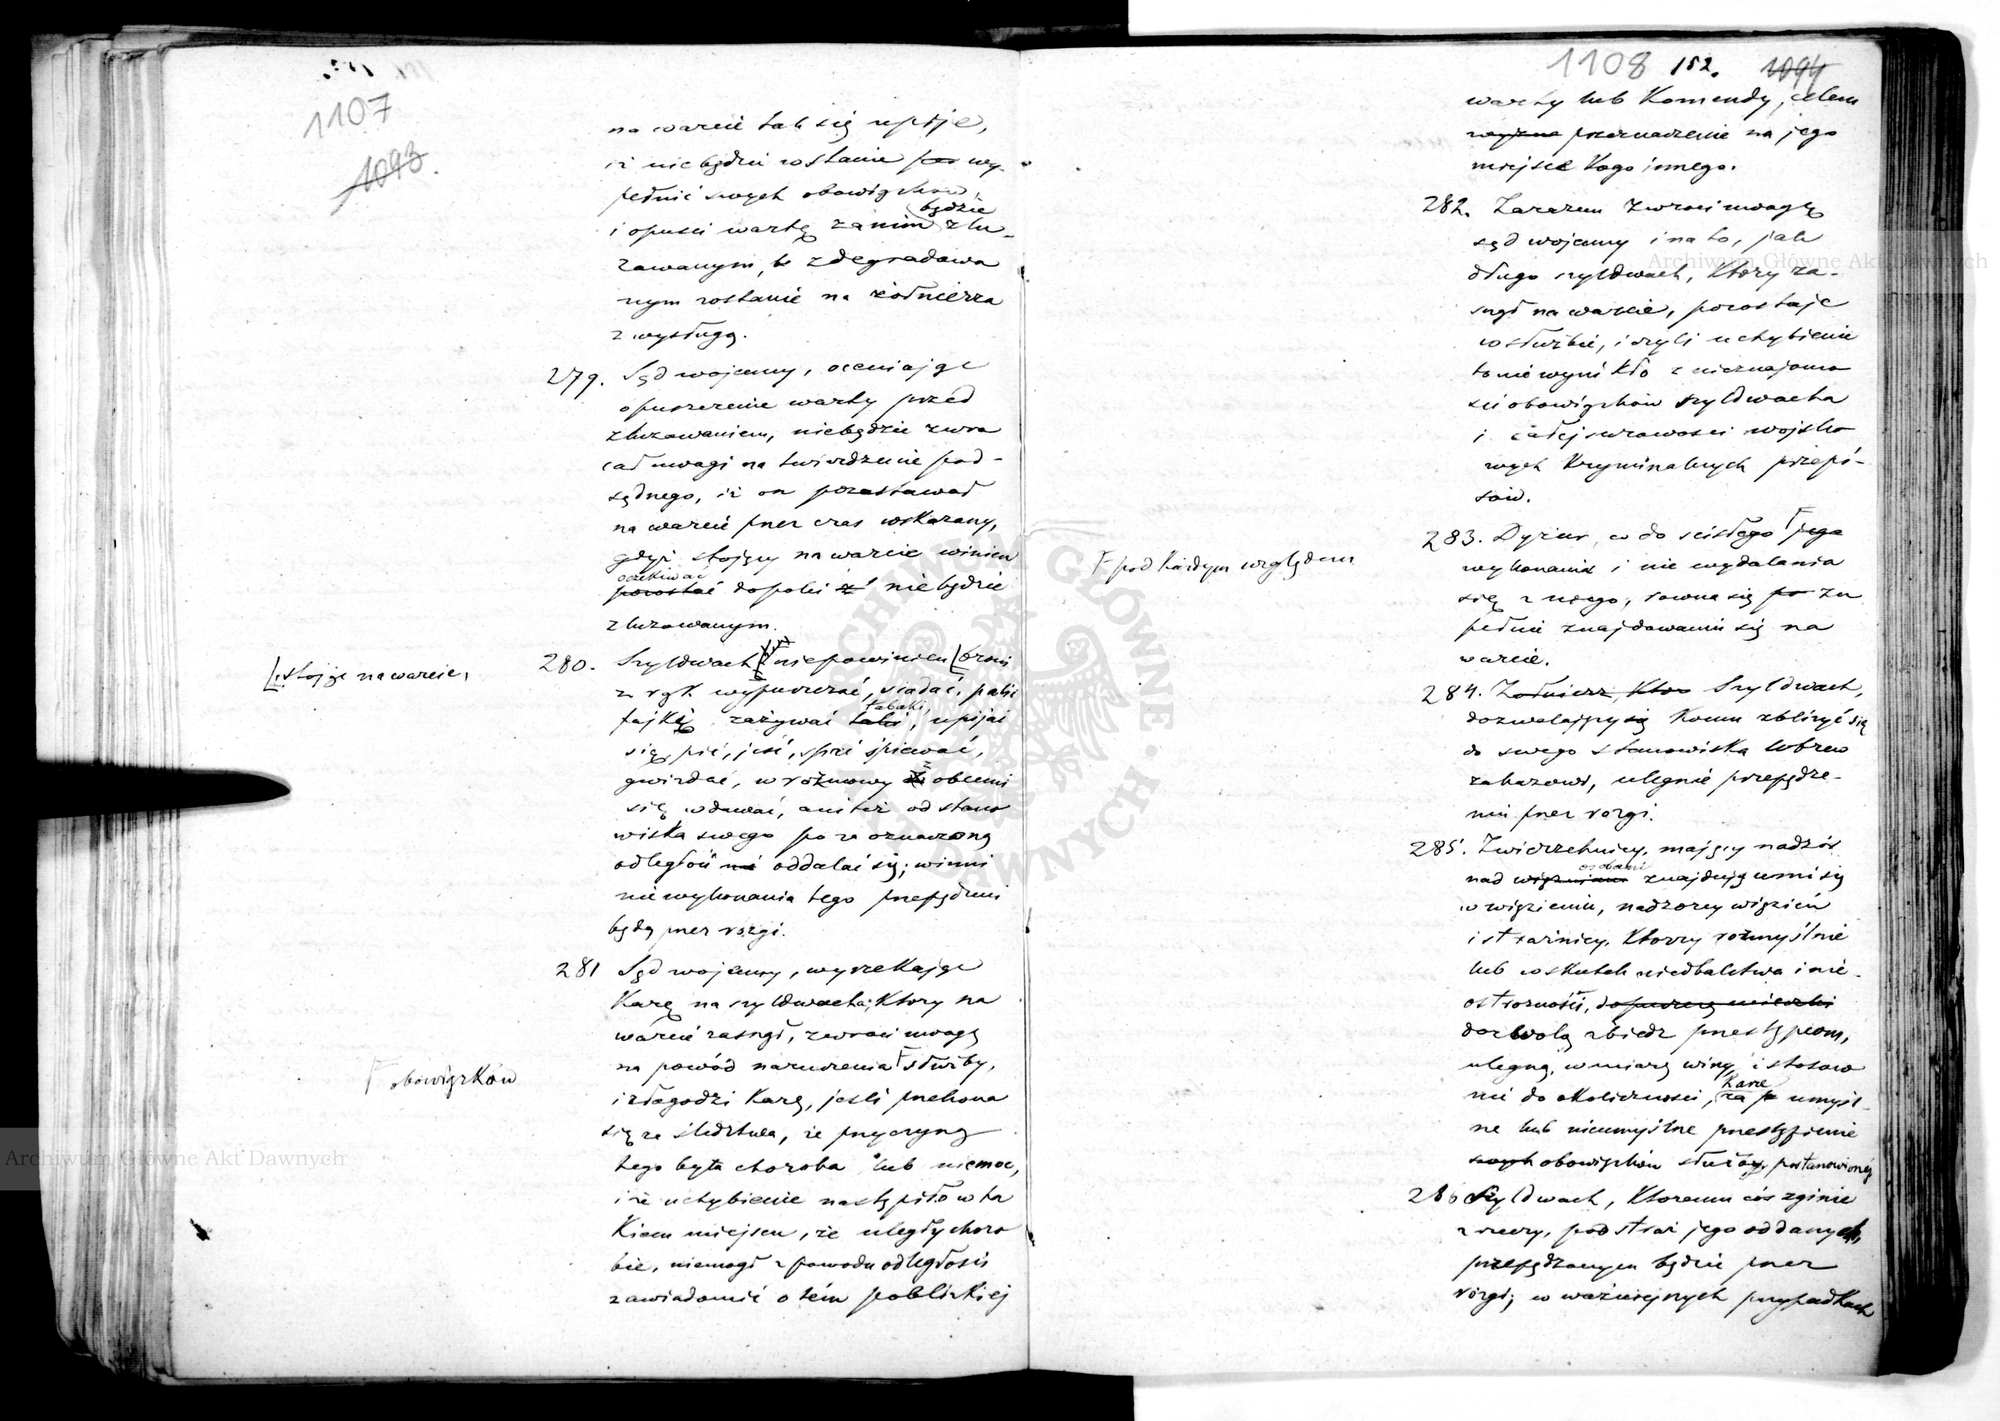 1107
1093.
na warcie tak się upije,
iż nie będzie w stanie wy-
pełnić swych obowiązków,
będzie
i opuści wartę zanim zlu-
zowanym, to zdegradowa
nym zostanie na żołnierza
z wysługą.
279. Sąd wojenny, oceniając
opuszczenie warty przed
zluzowaniem, niebędzie zwra
cał uwagi na twierdzenie pod-
sądnego, iż on pozostawał
na warcie przez czas wskazany,
gdyż stojący na warcie winien
oczekiwać
pozostać dopóki niebędzie
zluzowanym.
280. Szyldwach niepowinien broni
stojąc na warcie,
z rąk wypuszczać, siadać, palić
tabaki,
fajkę, zażywać, upijać
się, pić, jeść, spać śpiewać,
gwizdać, w rozmowy z obcemi
się wdawać, aniteż od stano
wiska swego po za oznaczoną
odległość oddalać się; winni
niewykonania tego przepędzeni
będą przez rózgi.
281 Sąd wojenny, wyrzekając
Karę na szyldwacha, Który na
warcie zasnął, zwróci uwagę
na powód naruszenia służby,
obowiązków
i złagodzi Karę, jeśli przekona
się ze śledztwa, że przyczyną
tego była choroba lub niemoc,
i że uchybienie nastąpiło w ta
Kiem miejscu, że uległy choro
bie, niemógł z powodu odległości
zawiadomić o tém poblizkiej
1108 152. 1094
warty lub Komendy, celem
przeznaczenia na jego
miejsce Kogo innego.
282. Zarazem zwróci uwagę
sąd wojenny i na to, jak
długo szyldwach, Który za-
snął na warcie, pozostaje
w służbie, i czyli uchybienie
to nie wynikło z nieznajomo
ści obowiązków szyldwacha
i całej surowości wojsko
wych Kryminalnych przepi-
sów.
283. Dyżur, co do ścisłego jego
pod Każdym względem
wykonania i nie wydalania
się z niego, równa się zu
pełnie znajdowaniu się na
warcie.
284. Żołnierz, Który Szyldwach,
dozwalający Komu zbliżyć się
do swego stanowiska wbrew
zakazowi, ulegnie przepędze-
niu przez rózgi.
285. Zwierzchnicy, mający nadzór
osobami
nad więźniami znajdującemi się
w więzieniu, nadzorcy więzień
i strażnicy, Którzy rozmyślnie
lub wskutek niedbalstwa i nie-
ostrożności,
dozwolą zbiedz przestępcom,
ulegną, w miarę winy i stosow
Karze
nie do okoliczności, za umyśl-
ne lub nieumyślne przestąpienie
obowiązków służby postanowionéj
286 Szyldwach, Któremu cóś zginie
z rzeczy, pod straż jego oddanych,
przepędzonym będzie przez
rózgi; w ważniejszych przypadkach
Archiwum Główne Akt Dawnych
Archiwum Główne Akt Dawnych